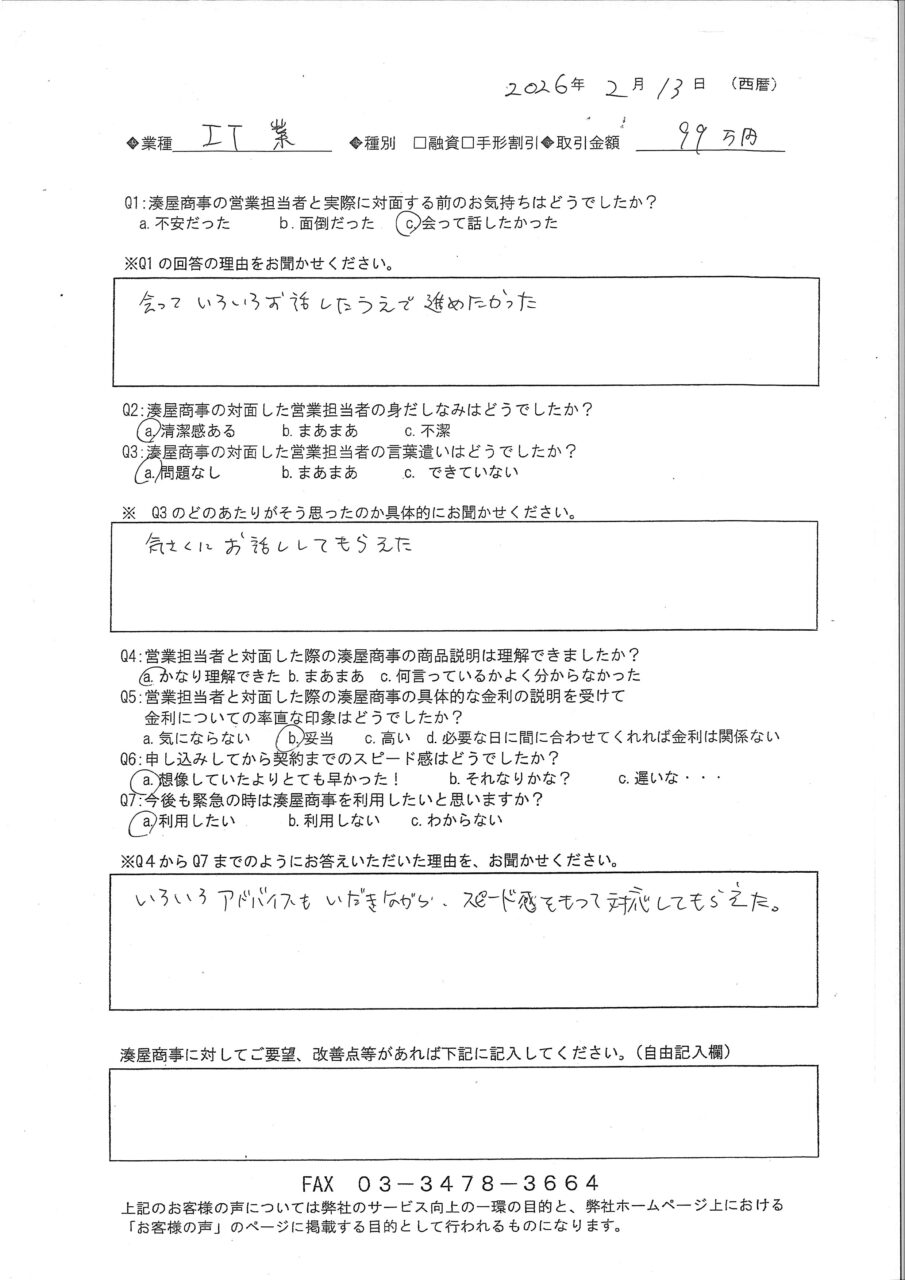 2026年 2月 13日 (西暦)
◆業種 IT業 ◆種別 □融資□手形割引◆取引金額 99万円
Q1:湊屋商事の営業担当者と実際に対面する前のお気持ちはどうでしたか?
a.不安だった b.面倒だった c.会って話したかった
※Q1の回答の理由をお聞かせください。
会って いろいろお話したうえで進めたかった
Q2:湊屋商事の対面した営業担当者の身だしなみはどうでしたか?
a.清潔感ある b.まあまあ c.不潔
Q3:湊屋商事の対面した営業担当者の言葉遣いはどうでしたか?
a.問題なし b.まあまあ c. できていない
※ Q3のどのあたりがそう思ったのか具体的にお聞かせください。
気さくに お話ししてもらえた
Q4:営業担当者と対面した際の湊屋商事の商品説明は理解できましたか?
a.かなり理解できた b.まあまあ c.何言っているかよく分からなかった
Q5:営業担当者と対面した際の湊屋商事の具体的な金利の説明を受けて
金利についての率直な印象はどうでしたか?
a.気にならない b.妥当 c.高い d.必要な日に間に合わせてくれれば金利は関係ない
Q6:申し込みしてから契約までのスピード感はどうでしたか?
a.想像していたよりとても早かった! b.それなりかな? c.遅いな・・・
Q7:今後も緊急の時は湊屋商事を利用したいと思いますか?
a.利用したい b.利用しない c.わからない
※Q4からQ7までのようにお答えいただいた理由を、お聞かせください。
いろいろ アドバイスも いだきながら、スピード感をもって対応してもらえた。
湊屋商事に対してご要望、改善点等があれば下記に記入してください。(自由記入欄)
FAX 03-3478-3664
上記のお客様の声については弊社のサービス向上の一環の目的と、弊社ホームページ上における
「お客様の声」のページに掲載する目的として行われるものになります。